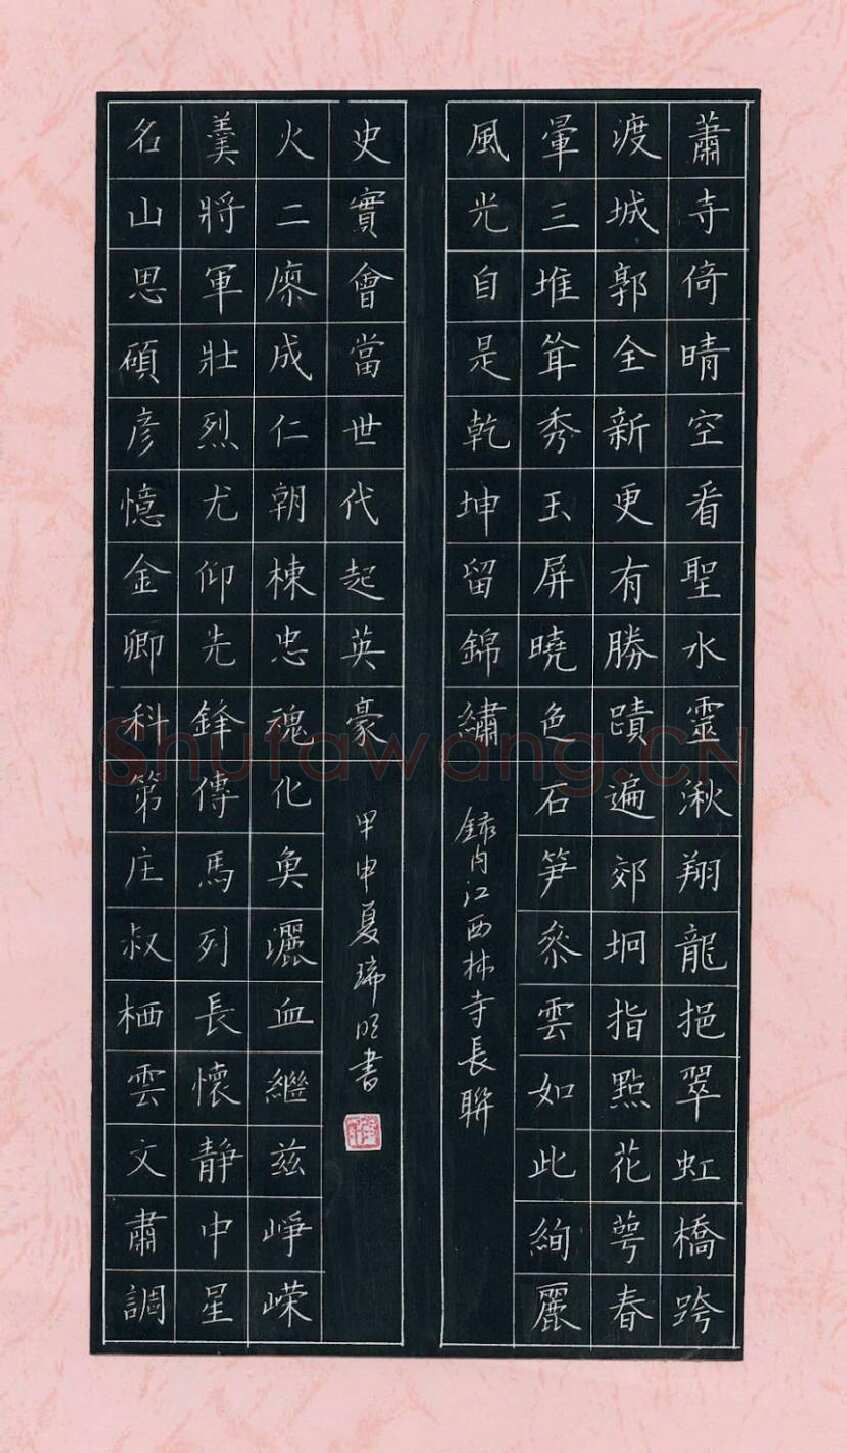 蕭寺倚晴空看聖水靈湫翔龍挹翠虹橋跨
渡城郭全新更有勝蹟遍郊坰指點花萼春
暈三堆耸秀玉屏曉色石笋叅雲如此絢麗
風光自是乾坤留錦繡
錄内江西林寺長聯
名山思碩彥憶金卿科第庄叔栖雲文肅調
羹將軍壯烈尤仰先鋒傳馬列長懷静中星
火二廖成仁朝棟忠魂化奐灑血繼兹崢嵘
史實會當世代起英豪
甲申夏瑞書
Shufawang.CN